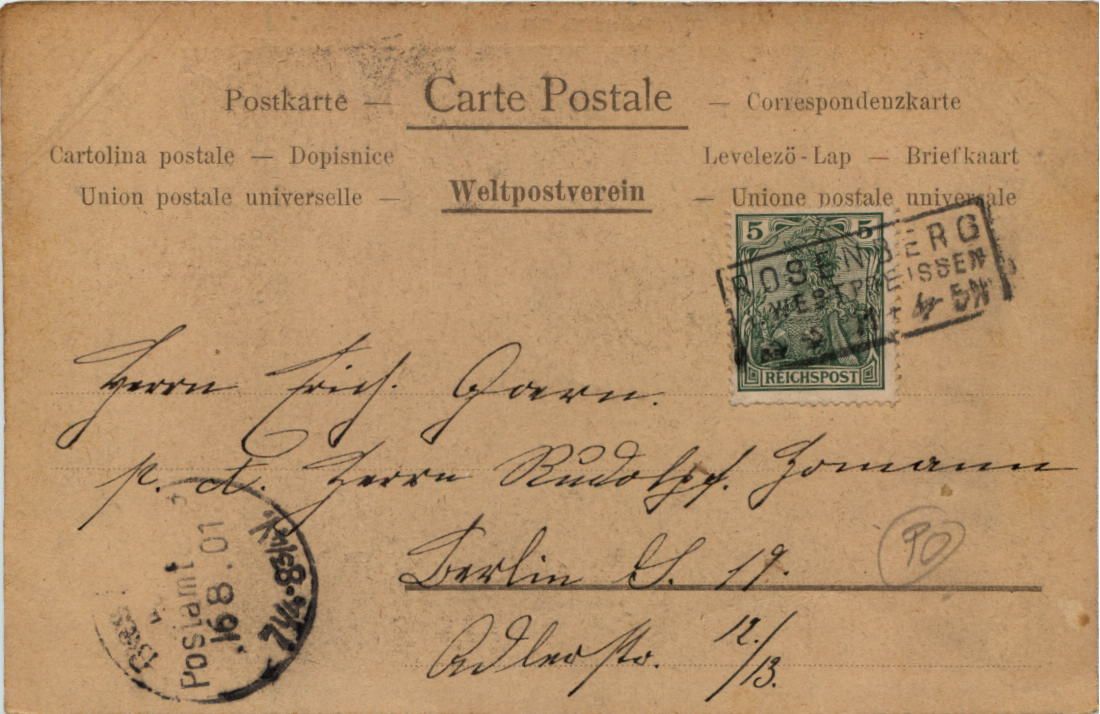 Postkarte — Carte Postale — Correspondenzkarte
Cartolina postale — Dopisnice Levelező-Lap — Briefkaart
Union postale universelle — Weltpostverein — Unione postale universale
5 5
REICHSPOST
ROSENBERG
WESTPREUSSEN
4-5N
Herrn Erich.
p. A. Herrn Rudolph. Homann
Berlin S. 19.
Adlerstr. 12./13.
Postamt
16 8.01
7¼-8½V.
PO